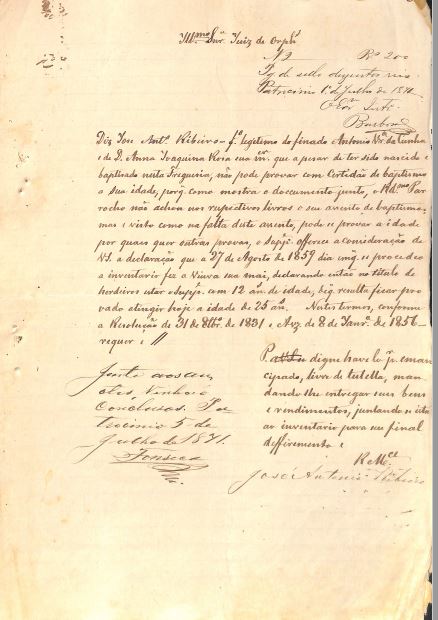 Illᵐᵒ Snr. Juiz de Orphˢ
Nº 2 Rˢ 200
Pg de sello duzentos reis
Patrocinio 1º de Julho de 1871
Barbosa
Diz José Antº Ribeiro fº legitimo do finado Antonio da Cunha
e de D. Anna Joaquina Rosa sua mᵉʳ. que a pesar de ter sido nascido e
baptisado nesta Freguezia, não pode provar com Certidão de baptismo
a sua idade, porq. como mostra o documento junto, o Rdᵐᵒ Par
rocho não achou nos respectivos livros o seu assento de baptismo,
mas e visto como na falta dute assento, pode se provar a idade
por quaes quer outras provas, o Suppᵉ. offerece a consideração de
VS. a declaração que a 27 de Agosto de 1859 dia em q. se procedeo
a inventario fez a Viuva sua mai, declarando então no titulo de
herdeiros estar o Suppᵉ. com 12 anˢ de idade, do q. resulta ficar pro
vado atingir hoje a idade de 25 anˢ. Nestes termos, conforme
a Resolução de 31 de 8brº. de 1831 e Avº. de 8 de Janrº. de 1856
requer e //
P. a VS. se digne havel o pʳ. eman
cipado, livre de tutella, man
dando lhe entregar seus bens
e rendimentos, juntando se esta
ao inventario para seu final
defferimento e
R Mᶜᵉ
José Antonio Ribeiro
Junte aos au
tos, venhão
Conclusos. Pa
trocinio 5 de
Julho de 1871.
Fonseca